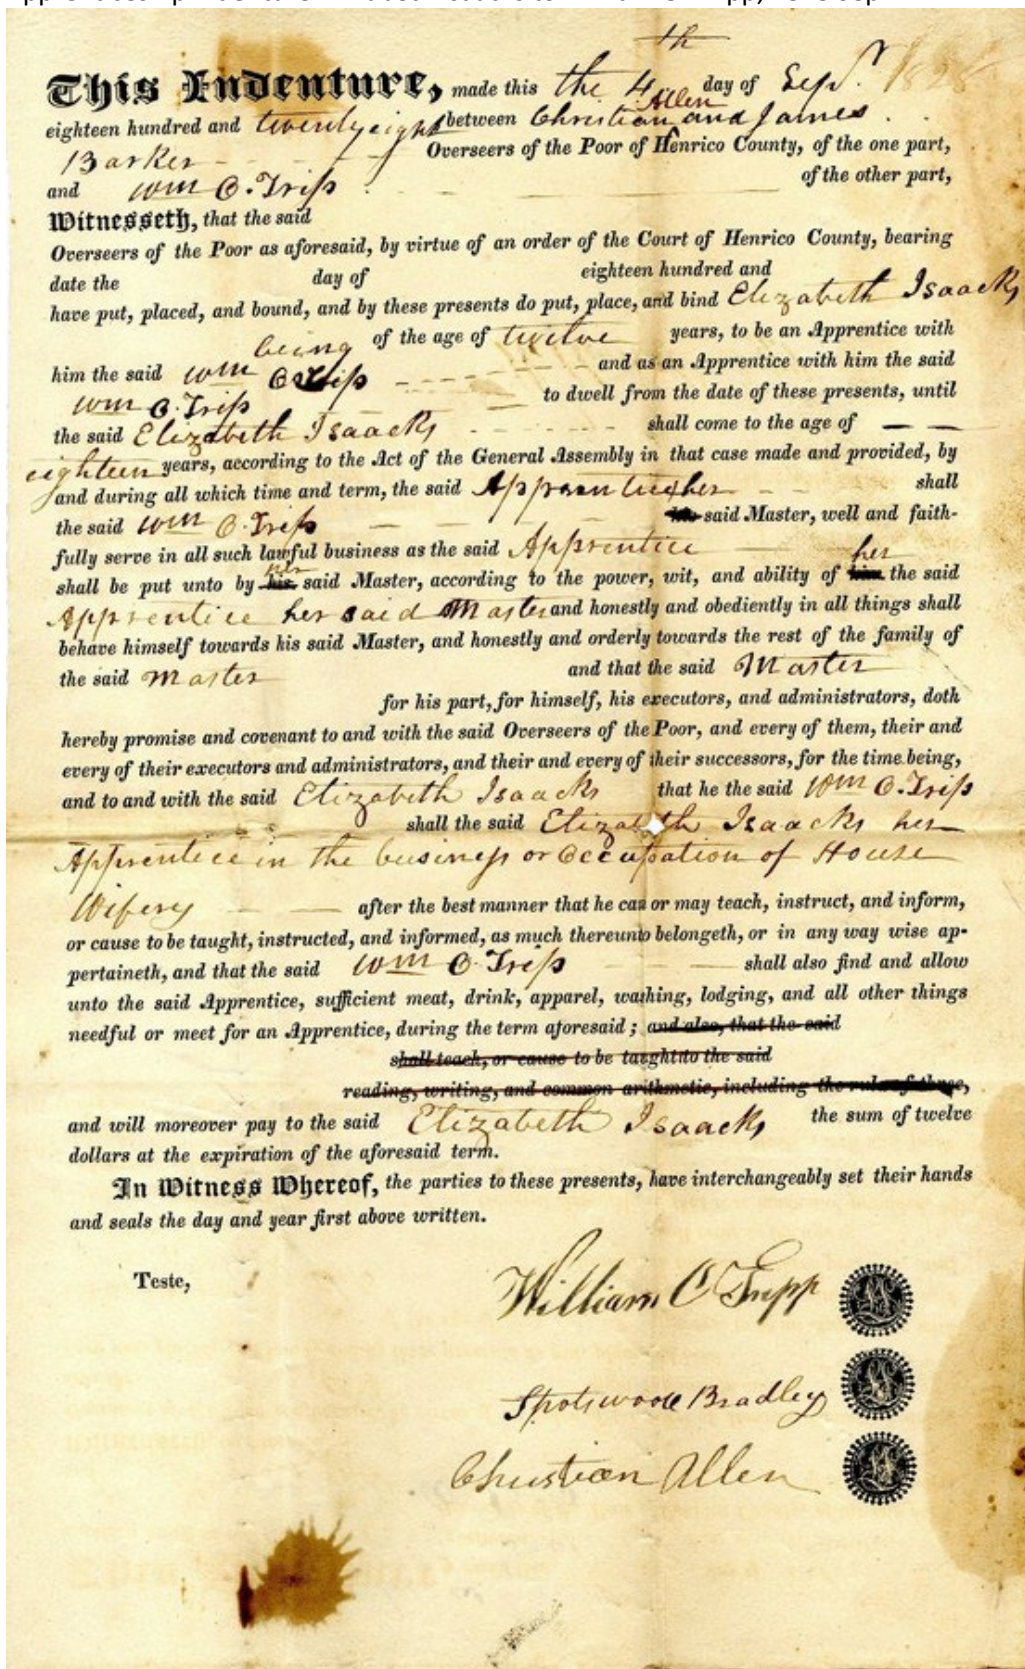 This Indenture, made this the 4th day of Sepr. 1828
eighteen hundred and twenty eight between Christian Allen and James
Barker Overseers of the Poor of Henrico County, of the one part,
and Wm C. Tripp of the other part,
Witnesseth, that the said
Overseers of the Poor as aforesaid, by virtue of an order of the Court of Henrico County, bearing
date the day of eighteen hundred and
have put, placed, and bound, and by these presents do put, place, and bind Elizabeth Isaacks
being of the age of twelve years, to be an Apprentice with
him the said Wm C Tripp and as an Apprentice with him the said
Wm C. Tripp to dwell from the date of these presents, until
the said Elizabeth Isaacks shall come to the age of
eighteen years, according to the Act of the General Assembly in that case made and provided, by
and during all which time and term, the said Apprentice her shall
the said Wm C. Tripp his said Master, well and faith-
fully serve in all such lawful business as the said Apprentice her
shall be put unto by his her said Master, according to the power, wit, and ability of him the said
Apprentice her said Master and honestly and obediently in all things shall
behave himself towards his said Master, and honestly and orderly towards the rest of the family of
the said Master and that the said Master
for his part, for himself, his executors, and administrators, doth
hereby promise and covenant to and with the said Overseers of the Poor, and every of them, their and
every of their executors and administrators, and their and every of their successors, for the time being,
and to and with the said Elizabeth Isaacks that he the said Wm C. Tripp
shall the said Elizabeth Isaacks her
Apprentice in the business or Occupation of House
Wifery after the best manner that he can or may teach, instruct, and inform,
or cause to be taught, instructed, and informed, as much thereunto belongeth, or in any way wise ap-
pertaineth, and that the said Wm C. Tripp shall also find and allow
unto the said Apprentice, sufficient meat, drink, apparel, washing, lodging, and all other things
needful or meet for an Apprentice, during the term aforesaid; and also, that the said
shall teach, or cause to be taught to the said
reading, writing, and common arithmetic, including the rule of three,
and will moreover pay to the said Elizabeth Isaacks the sum of twelve
dollars at the expiration of the aforesaid term.
In Witness Whereof, the parties to these presents, have interchangeably set their hands
and seals the day and year first above written.
Teste,
William C Tripp
Spotswood Bradley
Christian Allen